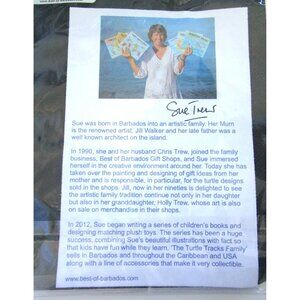 Sue Trew
Sue was born in Barbados into an artistic family. Her Mum
is the renowned artist, Jill Walker and her late father was a
well known architect on the island.
In 1990, she and her husband Chris Trew, joined the family
business, Best of Barbados Gift Shops, and Sue immersed
herself in the creative environment around her. Today she has
taken over the painting and designing of gift ideas from her
mother and is responsible, in particular, for the turtle designs
sold in the shops. Jill, now in her nineties is delighted to see
the artistic family tradition continue not only in her daughter
but also in her granddaughter, Holly Trew, whose art is also
on sale on merchandise in their shops.
In 2012, Sue began writing a series of children's books and
designing matching plush toys. The series has been a huge
success, combining Sue's beautiful illustrations with fact so
that kids have fun while they learn. 'The Turtle Tracks Family'
sells in Barbados and throughout the Caribbean and USA
along with a line of accessories that make it very collectible.
www.best-of-barbados.com